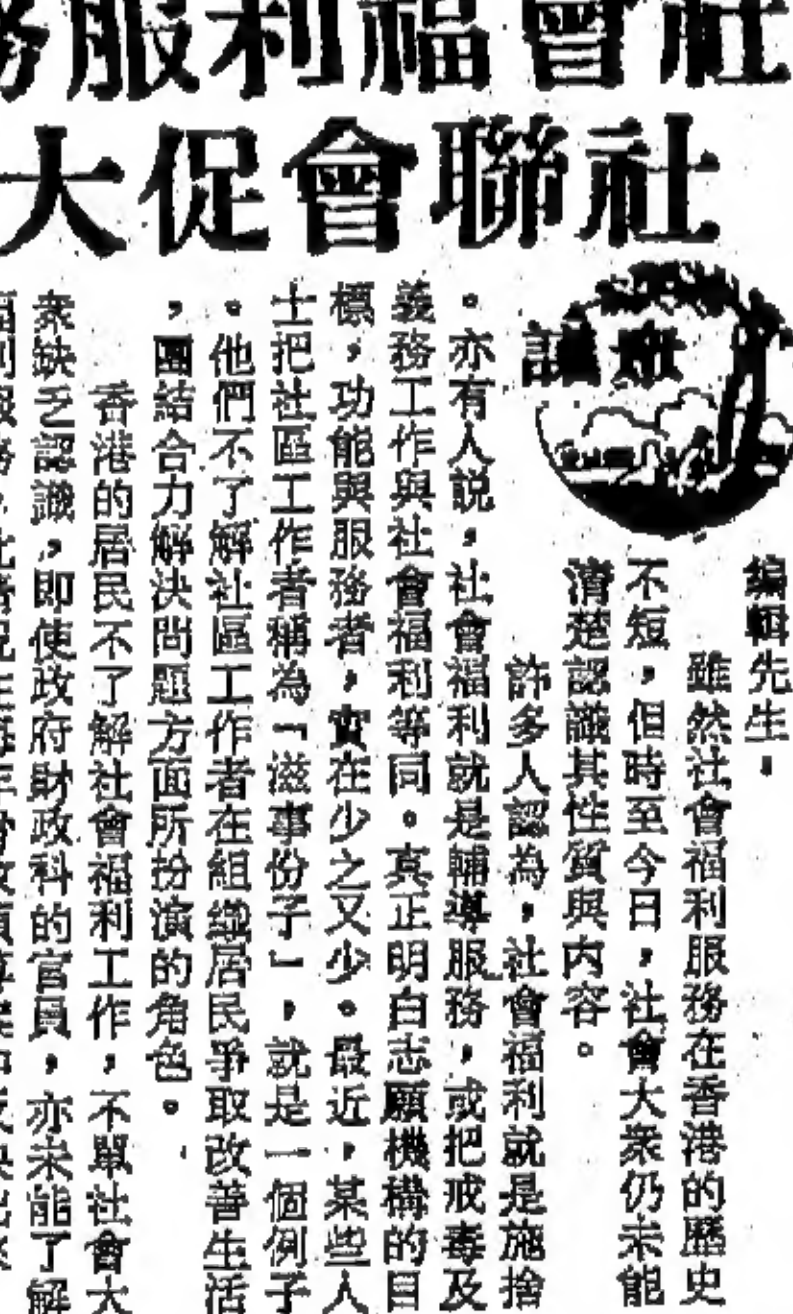 社會福利服務
社聯會促大
編輯先生，
雖然社會福利服務在香港的歷史
不短，但時至今日，社會大衆仍未能
清楚認識其性質與内容。
許多人認為，社會福利就是施捨
。亦有人説，社會福利就是輔導服務，或把戒毒及
義務工作與社會福利等同。真正明白志願機構的目
標，功能與服務者，實在少之又少。最近，某些人
士把社區工作者稱為「滋事份子」，就是一個例子
。他們不了解社區工作者在組織居民爭取改善生活
，團結合力解決問題方面所扮演的角色。
香港的居民不了解社會福利工作，不單社會大
衆缺乏認識，即使政府財政科的官員，亦未能了解